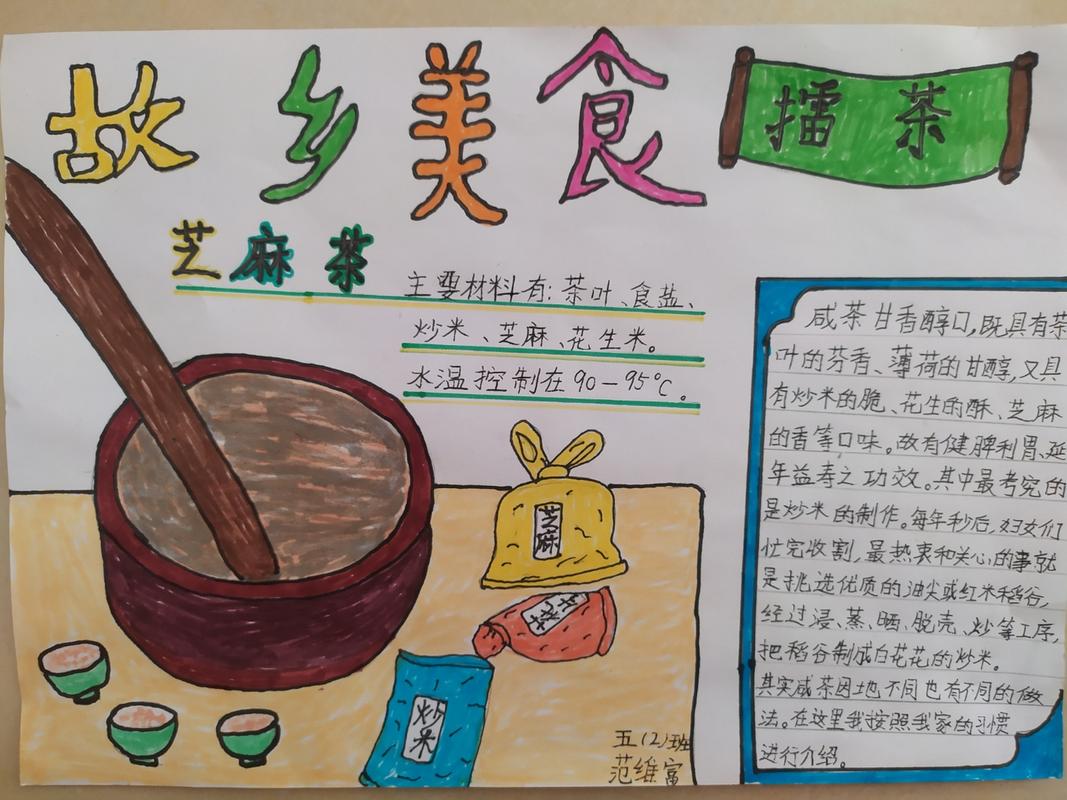 故乡美食
擂茶
芝麻茶
主要材料有:茶叶、食盐、
炒米、芝麻、花生米。
水温控制在90-95℃。
咸茶甘香醇口,既具有茶
叶的芬香、薄荷的甘醇,又具
有炒米的脆、花生的酥、芝麻
的香等口味。故有健脾利胃、延
年益寿之功效。其中最考究的
是炒米的制作。每年秒后,妇女们
忙完收割,最热衷和关心的事就
是挑选优质的油尖或红米稻谷,
经过浸、蒸、晒、脱壳、炒等工序,
把稻谷制成白花花的炒米。
其实咸茶因地不同也有不同的做
法。在这里我按照我家的习惯
进行介绍。
芝麻
炒米
五(2)班
范维富